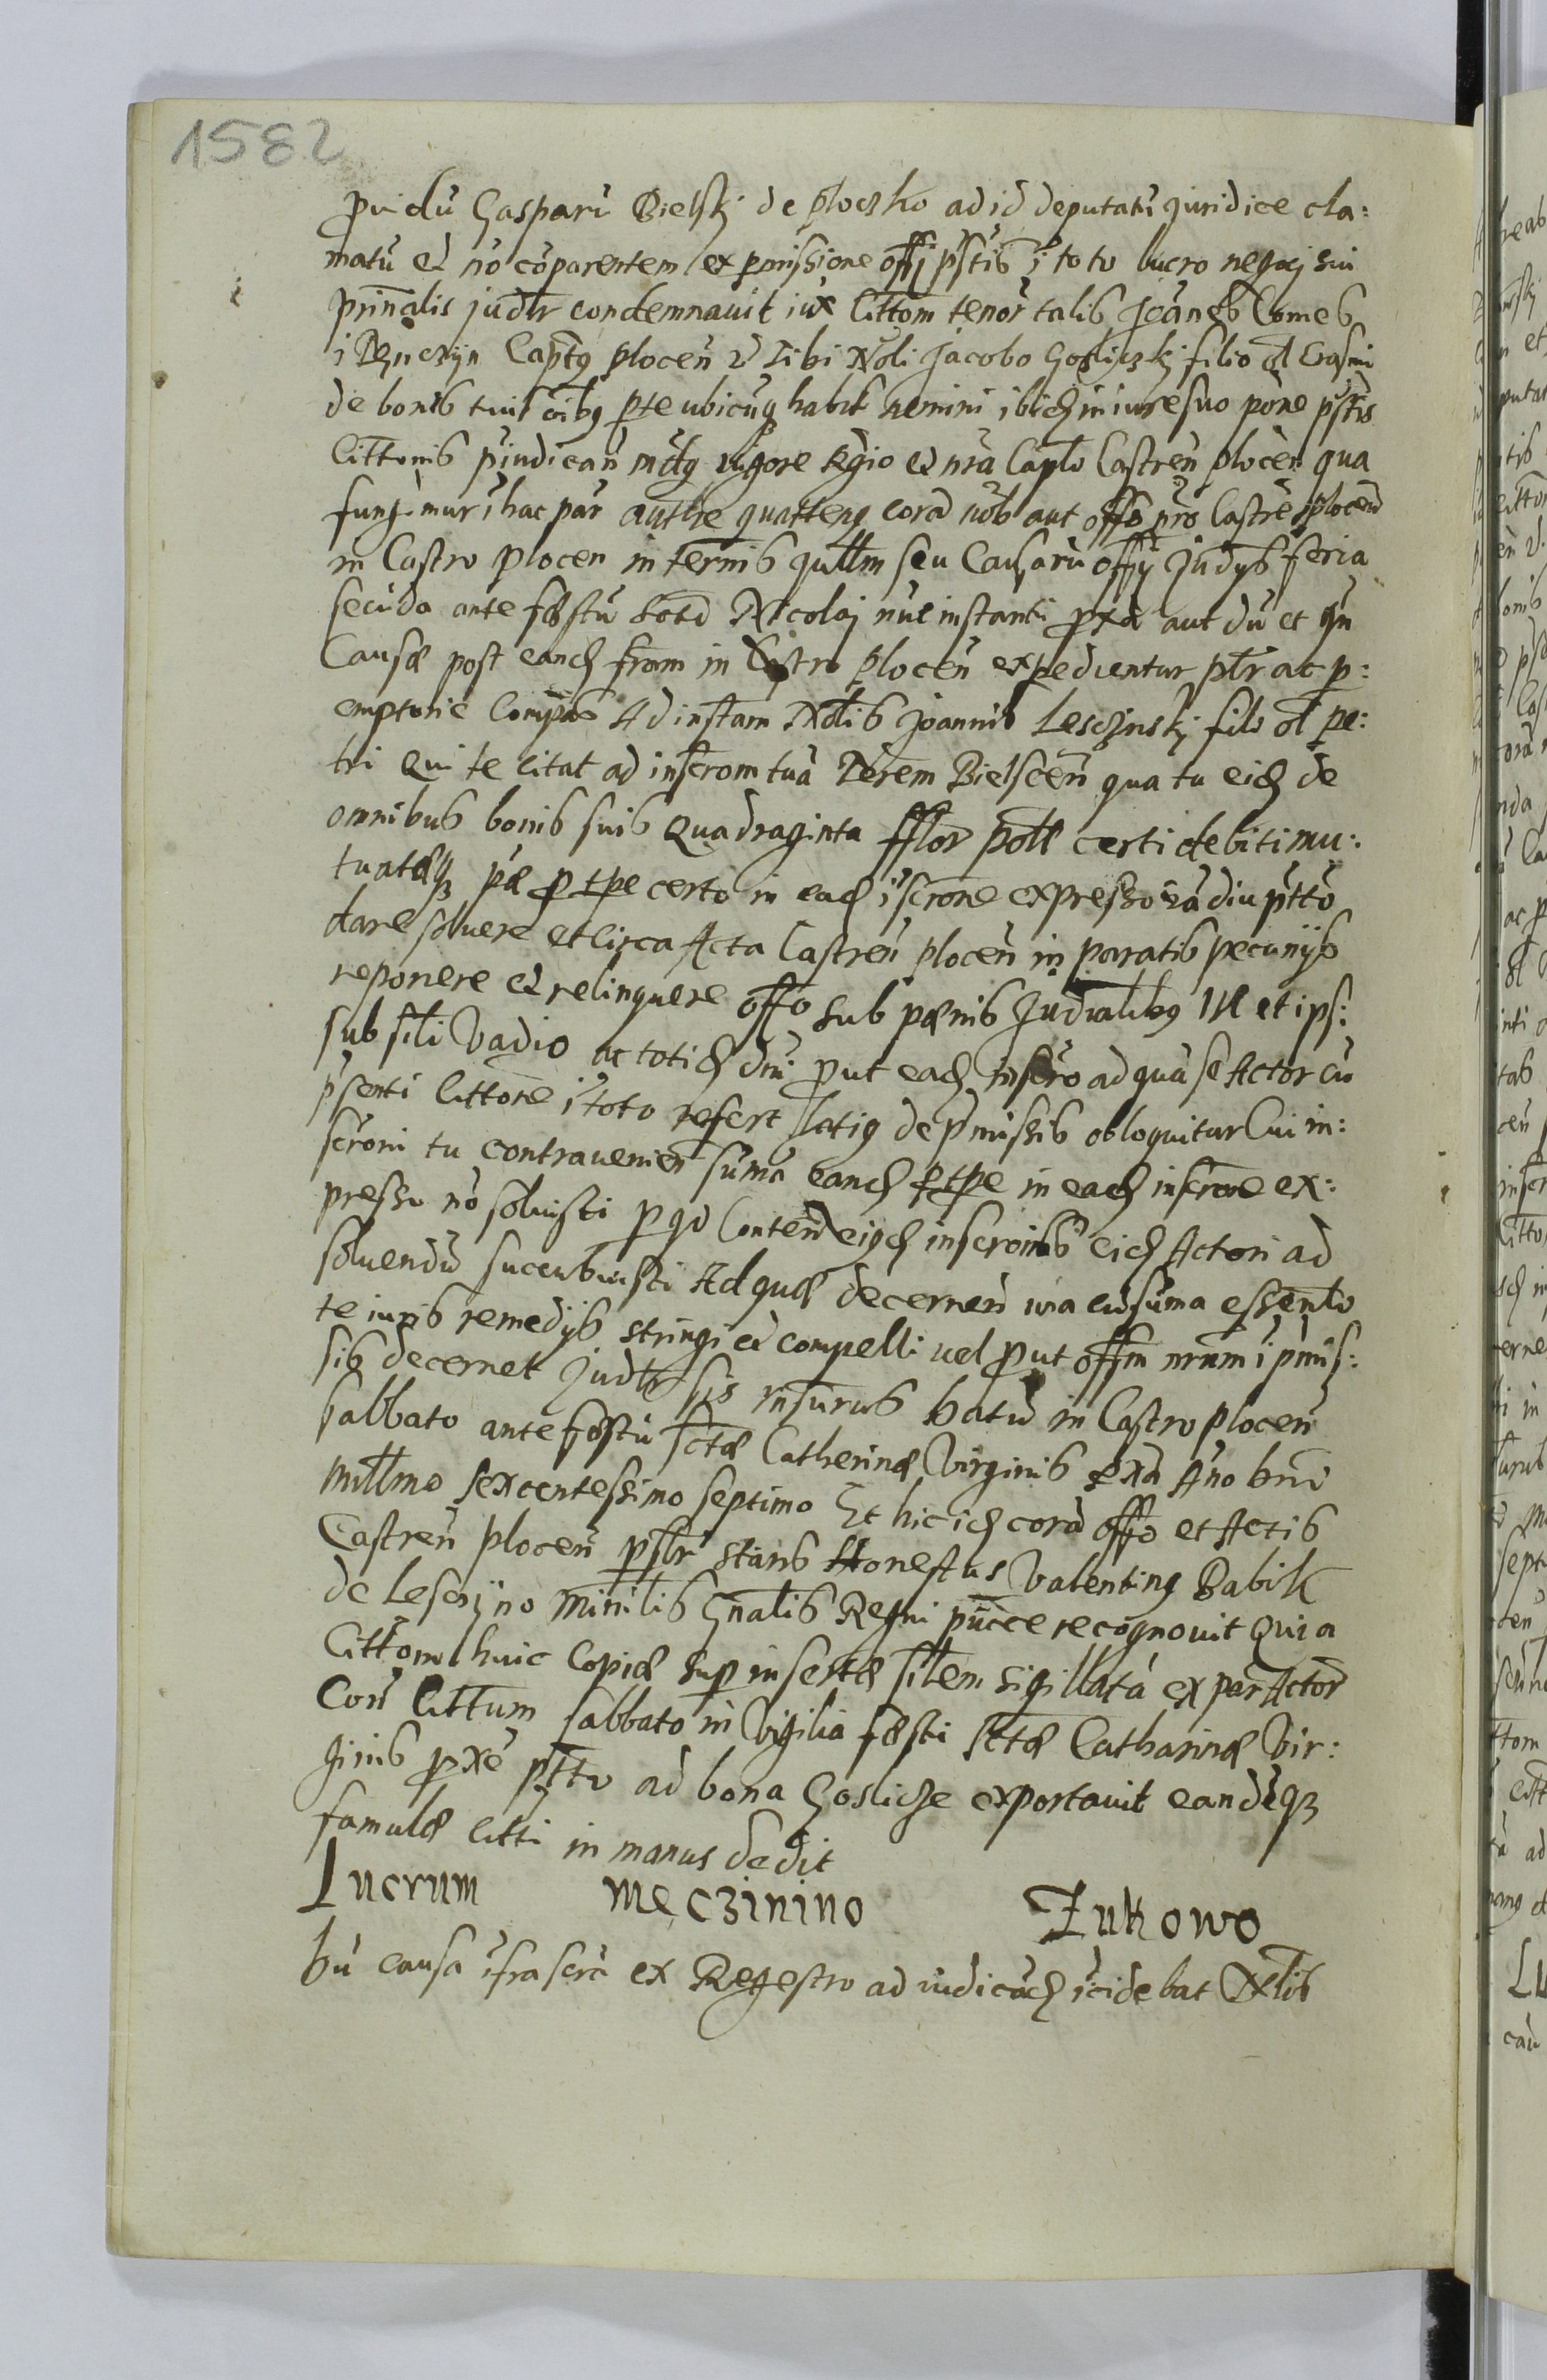 1582
Pvidu Gaspari Bielskj de ploczko ad id deputatu juridice cla:
matu et no coparentem ex pmissione offij pstis i toto lucro negocj sui
prinalis judlr condemnavit iux Cittom tenor talis Joanes Comes
i Capts plocen Tibi Noli Jacobo Gosliczkj filio ol Erasmi
de bonis tuis oibq pte ubicuq habit nemini ibidem in iure suo pone pstis
Cittonis piudican mdtq vigore Regio et nra Captli Castren plocen qua
fungimur i hac par authe quatteng cora nob aut offo nro Castren plocen
in Castro plocen in termis qullm seu Causaru offij Judys feria
secuda ante festu Nicolaj nuc instanti pxa aut du et qn
Causæ post eand fram in Castro plocen expedientur ptr ac p:
emptorie Compas Ad instam Nolis Joannis Lesczinskj fily ol pe:
tri Qui te citat ad inscrom tua Terem Bielscen qua tu eid de
omnibus bonis suis Quadraginta fflor poll certi debiti mu:
tuatæq pæ p tpe certo in ead iscrone expresso ia diu ptto
dare soluere et circa Acta Castren plocen in paratis pecunijs
reponere et relinquere offo sub pænis Judialibq 14 et ips:
sub sili Vadio ac totid put ead inscro ad qua se Actor cu
psenti Cittone i toto refert latiq de pmissis obloquitur Cui in:
scroni tu contravenien suma eand p tpe in ead inscrone ex:
presso no soluisti p qd Conten eiqd inscronis eid Actori ad
soluendu sucubuisti Ad quæ decernen una cu suma essento
te iuris remedijs stringi et compelli vel put offm nrum i pmis:
sis decernet judlr sis insurus Datu in Castro plocen
sabbato ante festu sctæ Catherinæ Virginis pxa Ano Dni
Millmo sexcentessimo septimo Et hic id cora offo et Actis
Castren plocen pslr stans Honestus Valenting Babik
de Lesczijno Minilis Gnalis Regni puce recognovit Quia
Cittom huic Copiæ sup insertæ silem sigillata ex par Actor
Con Cittum sabbato in Vigilia festi sctæ Catharinæ Vir:
ginis pxe ptto ad bona Goslicze exportavit eandeq
famulæ citti in manus dedit
Lucrum Meczinino Zukowo
Du causa ifrascra ex Regestro ad iudicad icidebat Nlis